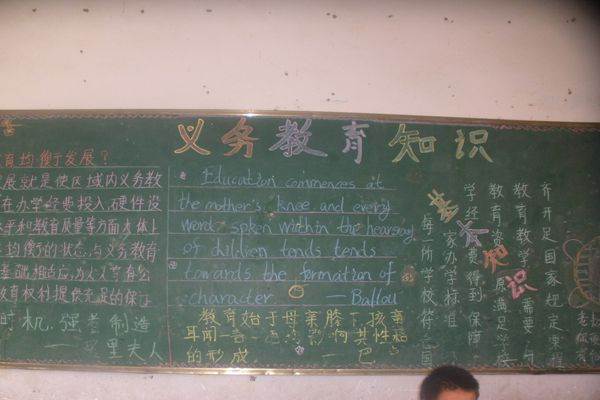 义务教育知识
育均衡发展？
展就是使区域内义务教
在办学经费投入、硬件设
水平和教育质量等方面大体上
均衡的状态，与义务教育
基础相适应，为人人享有公
教育权利提供充足的保
时机，强者制造
里夫人
Education commences at
the mother's knee and every
word spken within the hearsay
of children tends tends
towards the formation of
character. — Ballou
教育始于母亲膝下，孩童
耳闻一言一语影响其性格
的形成 — 巴
基本知识
齐开足国家规定课程
教育教学需要
教育资源满足学校
学经费得到保障
家办学标准
每一所学校符合国